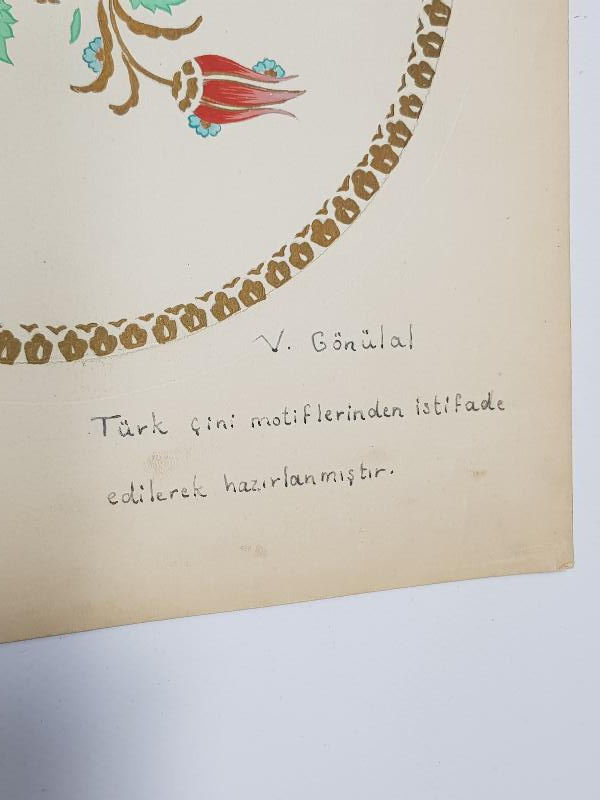 V. Gönülal
Türk çini motiflerinden istifade
edilerek hazırlanmıştır.